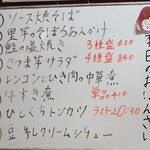 ソース焼そば
里芋のそぼろあんかけ
鮭の塩焼き 3種盛 630
さつま芋サラダ 4種盛 840
レンコンとひき肉の中華煮
牛すき煮 単品 410
ひとくちトンカツ ラスト21:30
豆乳クリームシチュー
本日のおばんざい